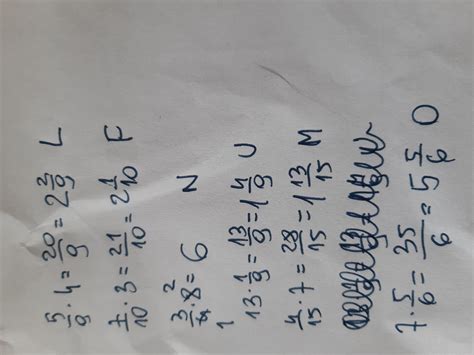 5/9 · 4 = 20/9 = 2 2/9 L
7/10 · 3 = 21/10 = 2 1/10 F
3/4 · 8 2 = 6 N
1
13 · 1/9 = 13/9 = 1 4/9 U
4/15 · 7 = 28/15 = 1 13/15 M
7 · 5/6 = 35/6 = 5 5/6 O